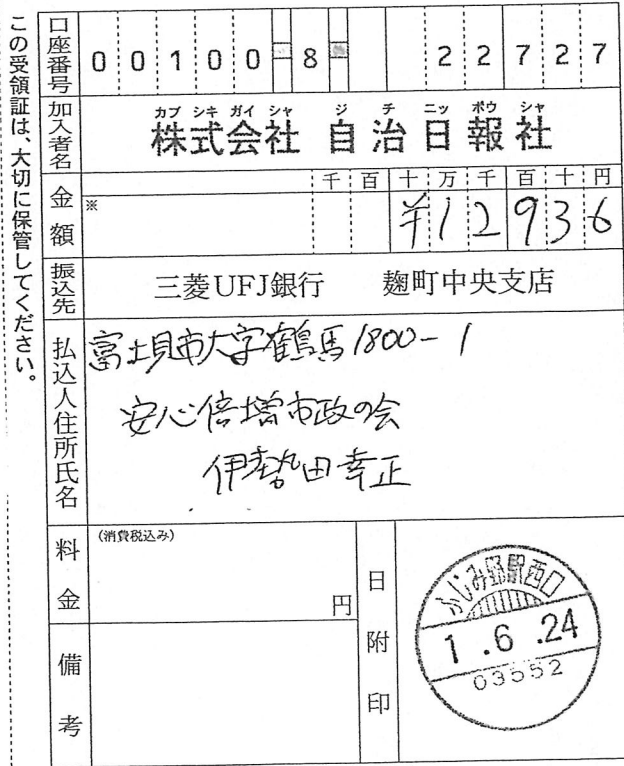 この受領証は、大切に保管してください。
口座番号 00100-8 22727
加入者名
カブ シキ ガイ シャ ジ チ ニッ ポウ シャ
株式会社 自治日報社
金額
千 百 十 万 千 百 十 円
※
¥12936
振込先 三菱UFJ銀行 麹町中央支店
払込人住所氏名
富士見市大字鶴馬1800-1
安心倍増市政の会
伊勢田幸正
料金 (消費税込み)
円
備考
日附印
ふじみ野駅西口
1.6.24
03552